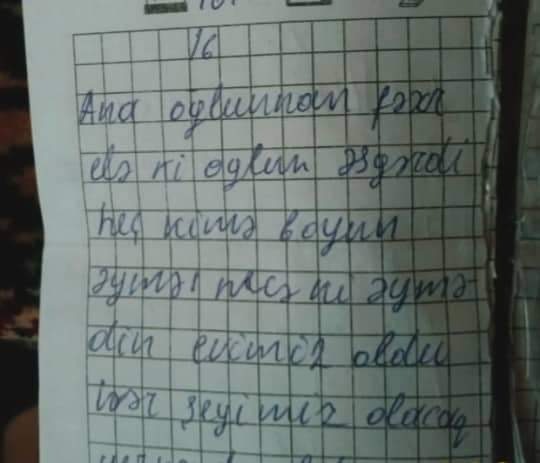 16
Ana oğlunnan fəxr
elə ki oğlun əждахdi
heç kimə boyun
əymə! necə ki əymə
din evimiz oldu
hər şeyimiz olacaq